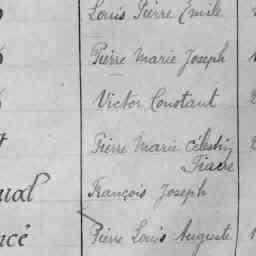 Louis Pierre Emile
Pierre Marie Joseph
Victor Constant
Pierre Marie Célestin
Fiacre
ual François Joseph
ncé Pierre Louis Auguste